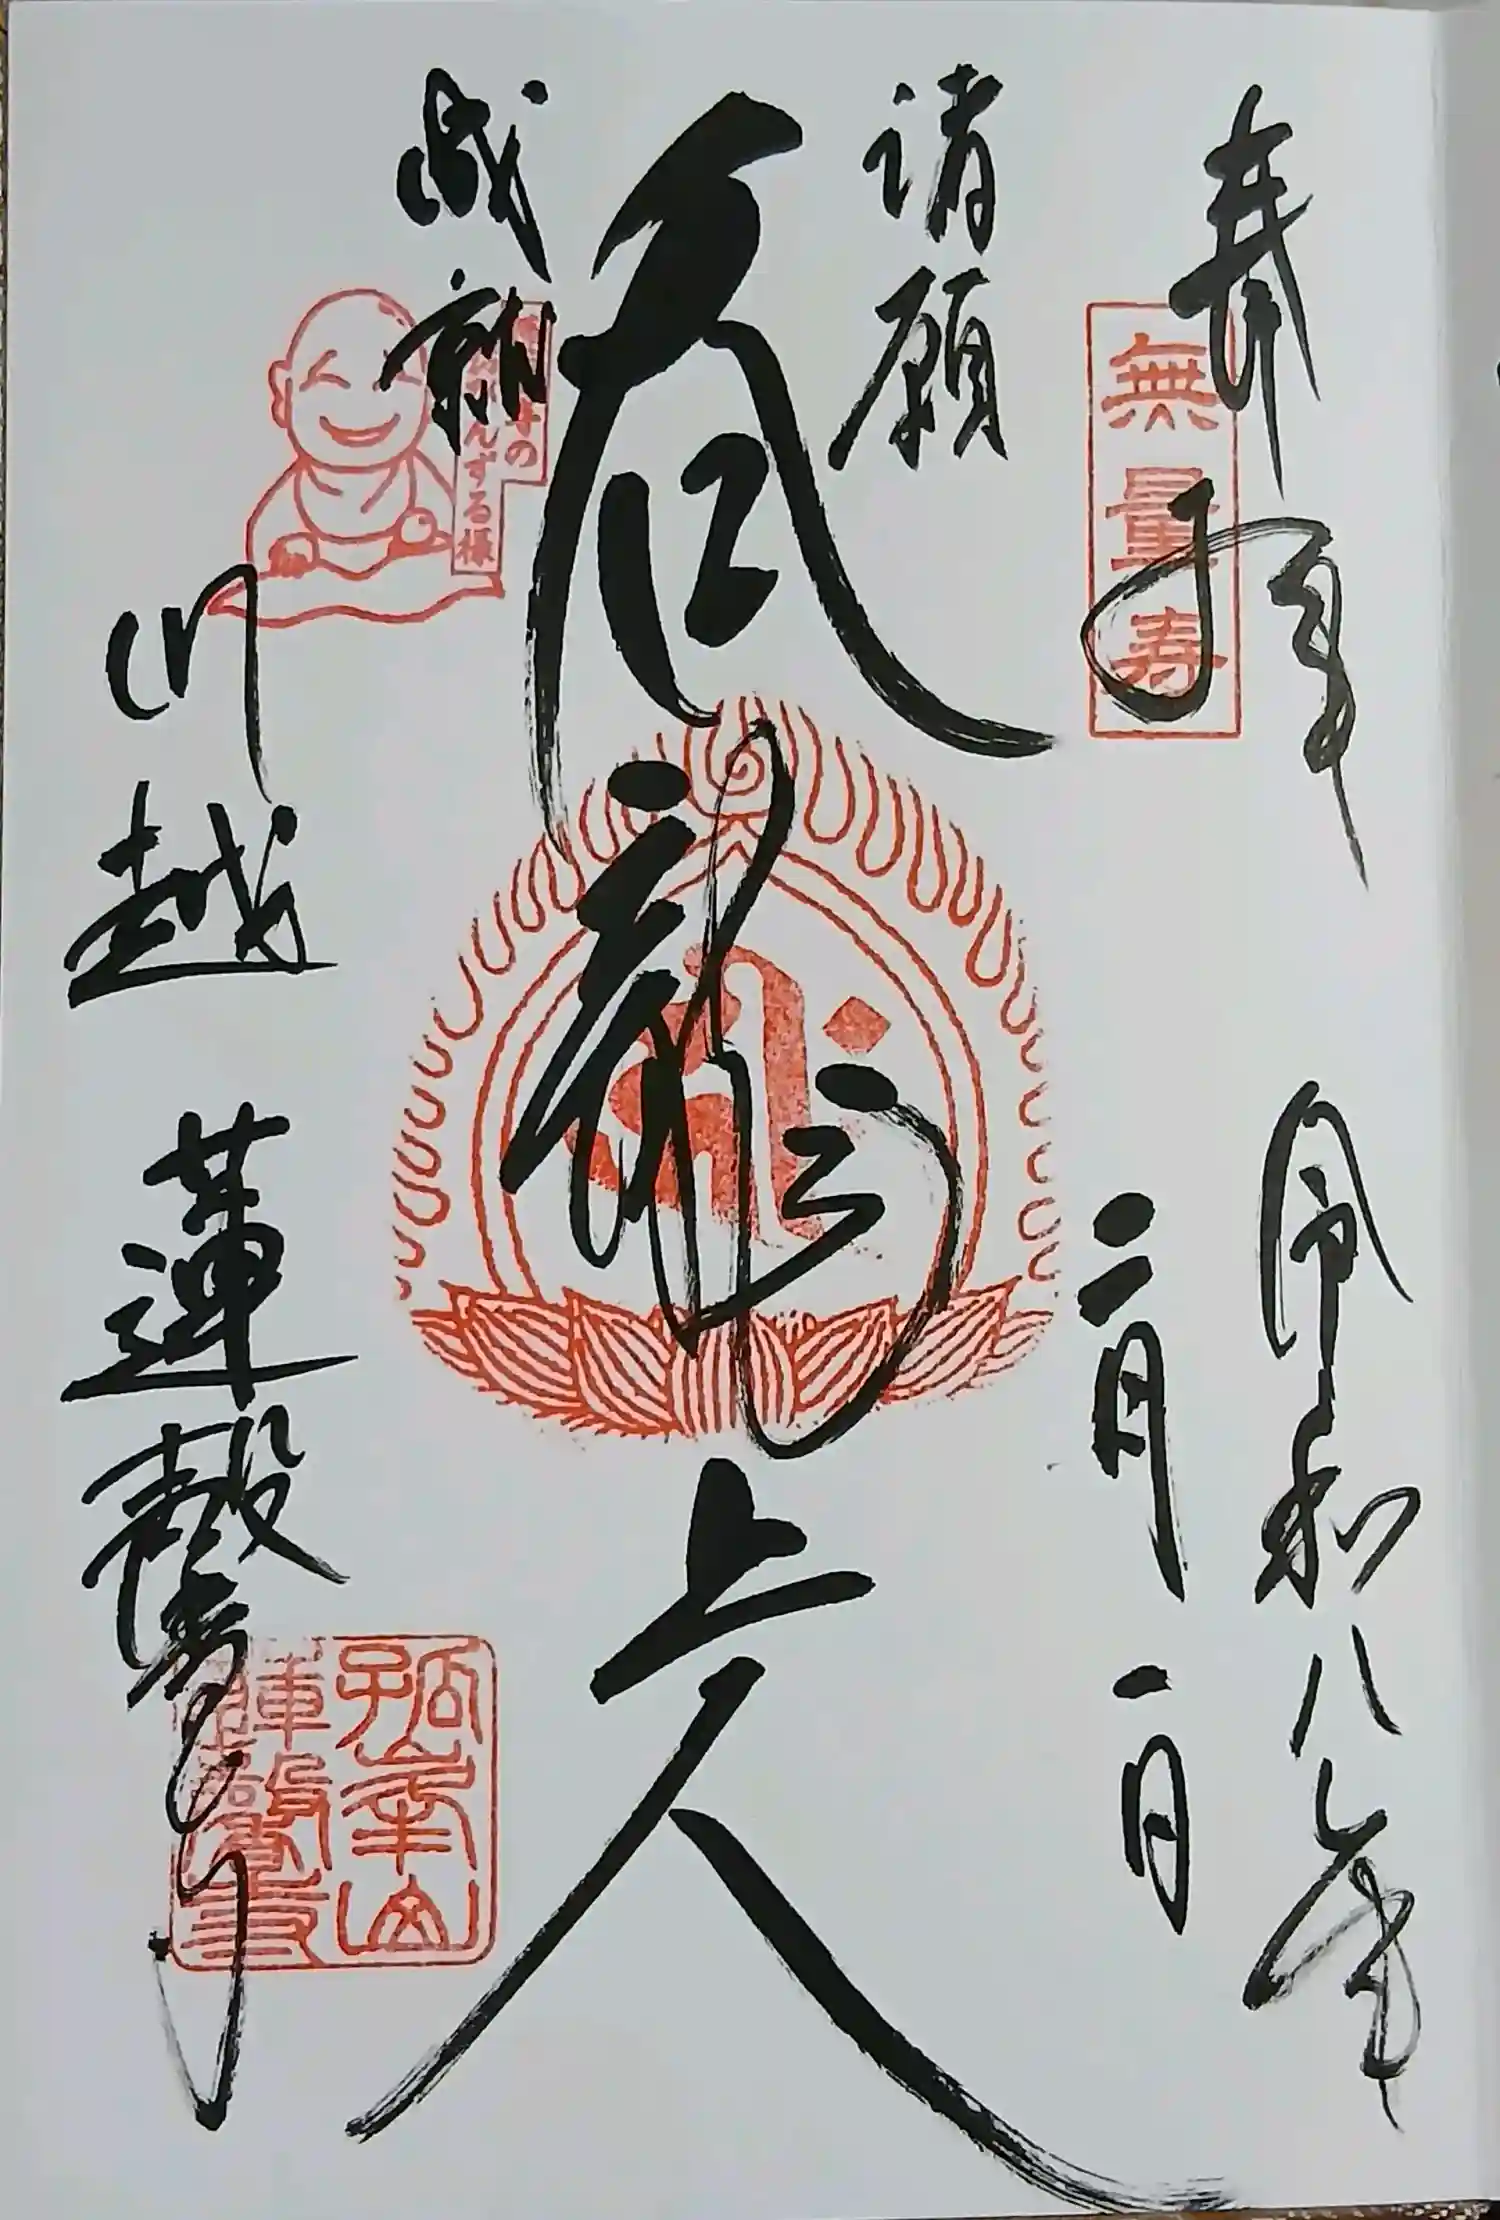 奉拝
無量寿
令和八年
二月一日
諸願
呑龍上人
成就
寺の
んずる様
川越 蓮馨寺
孤峯山
蓮馨寺